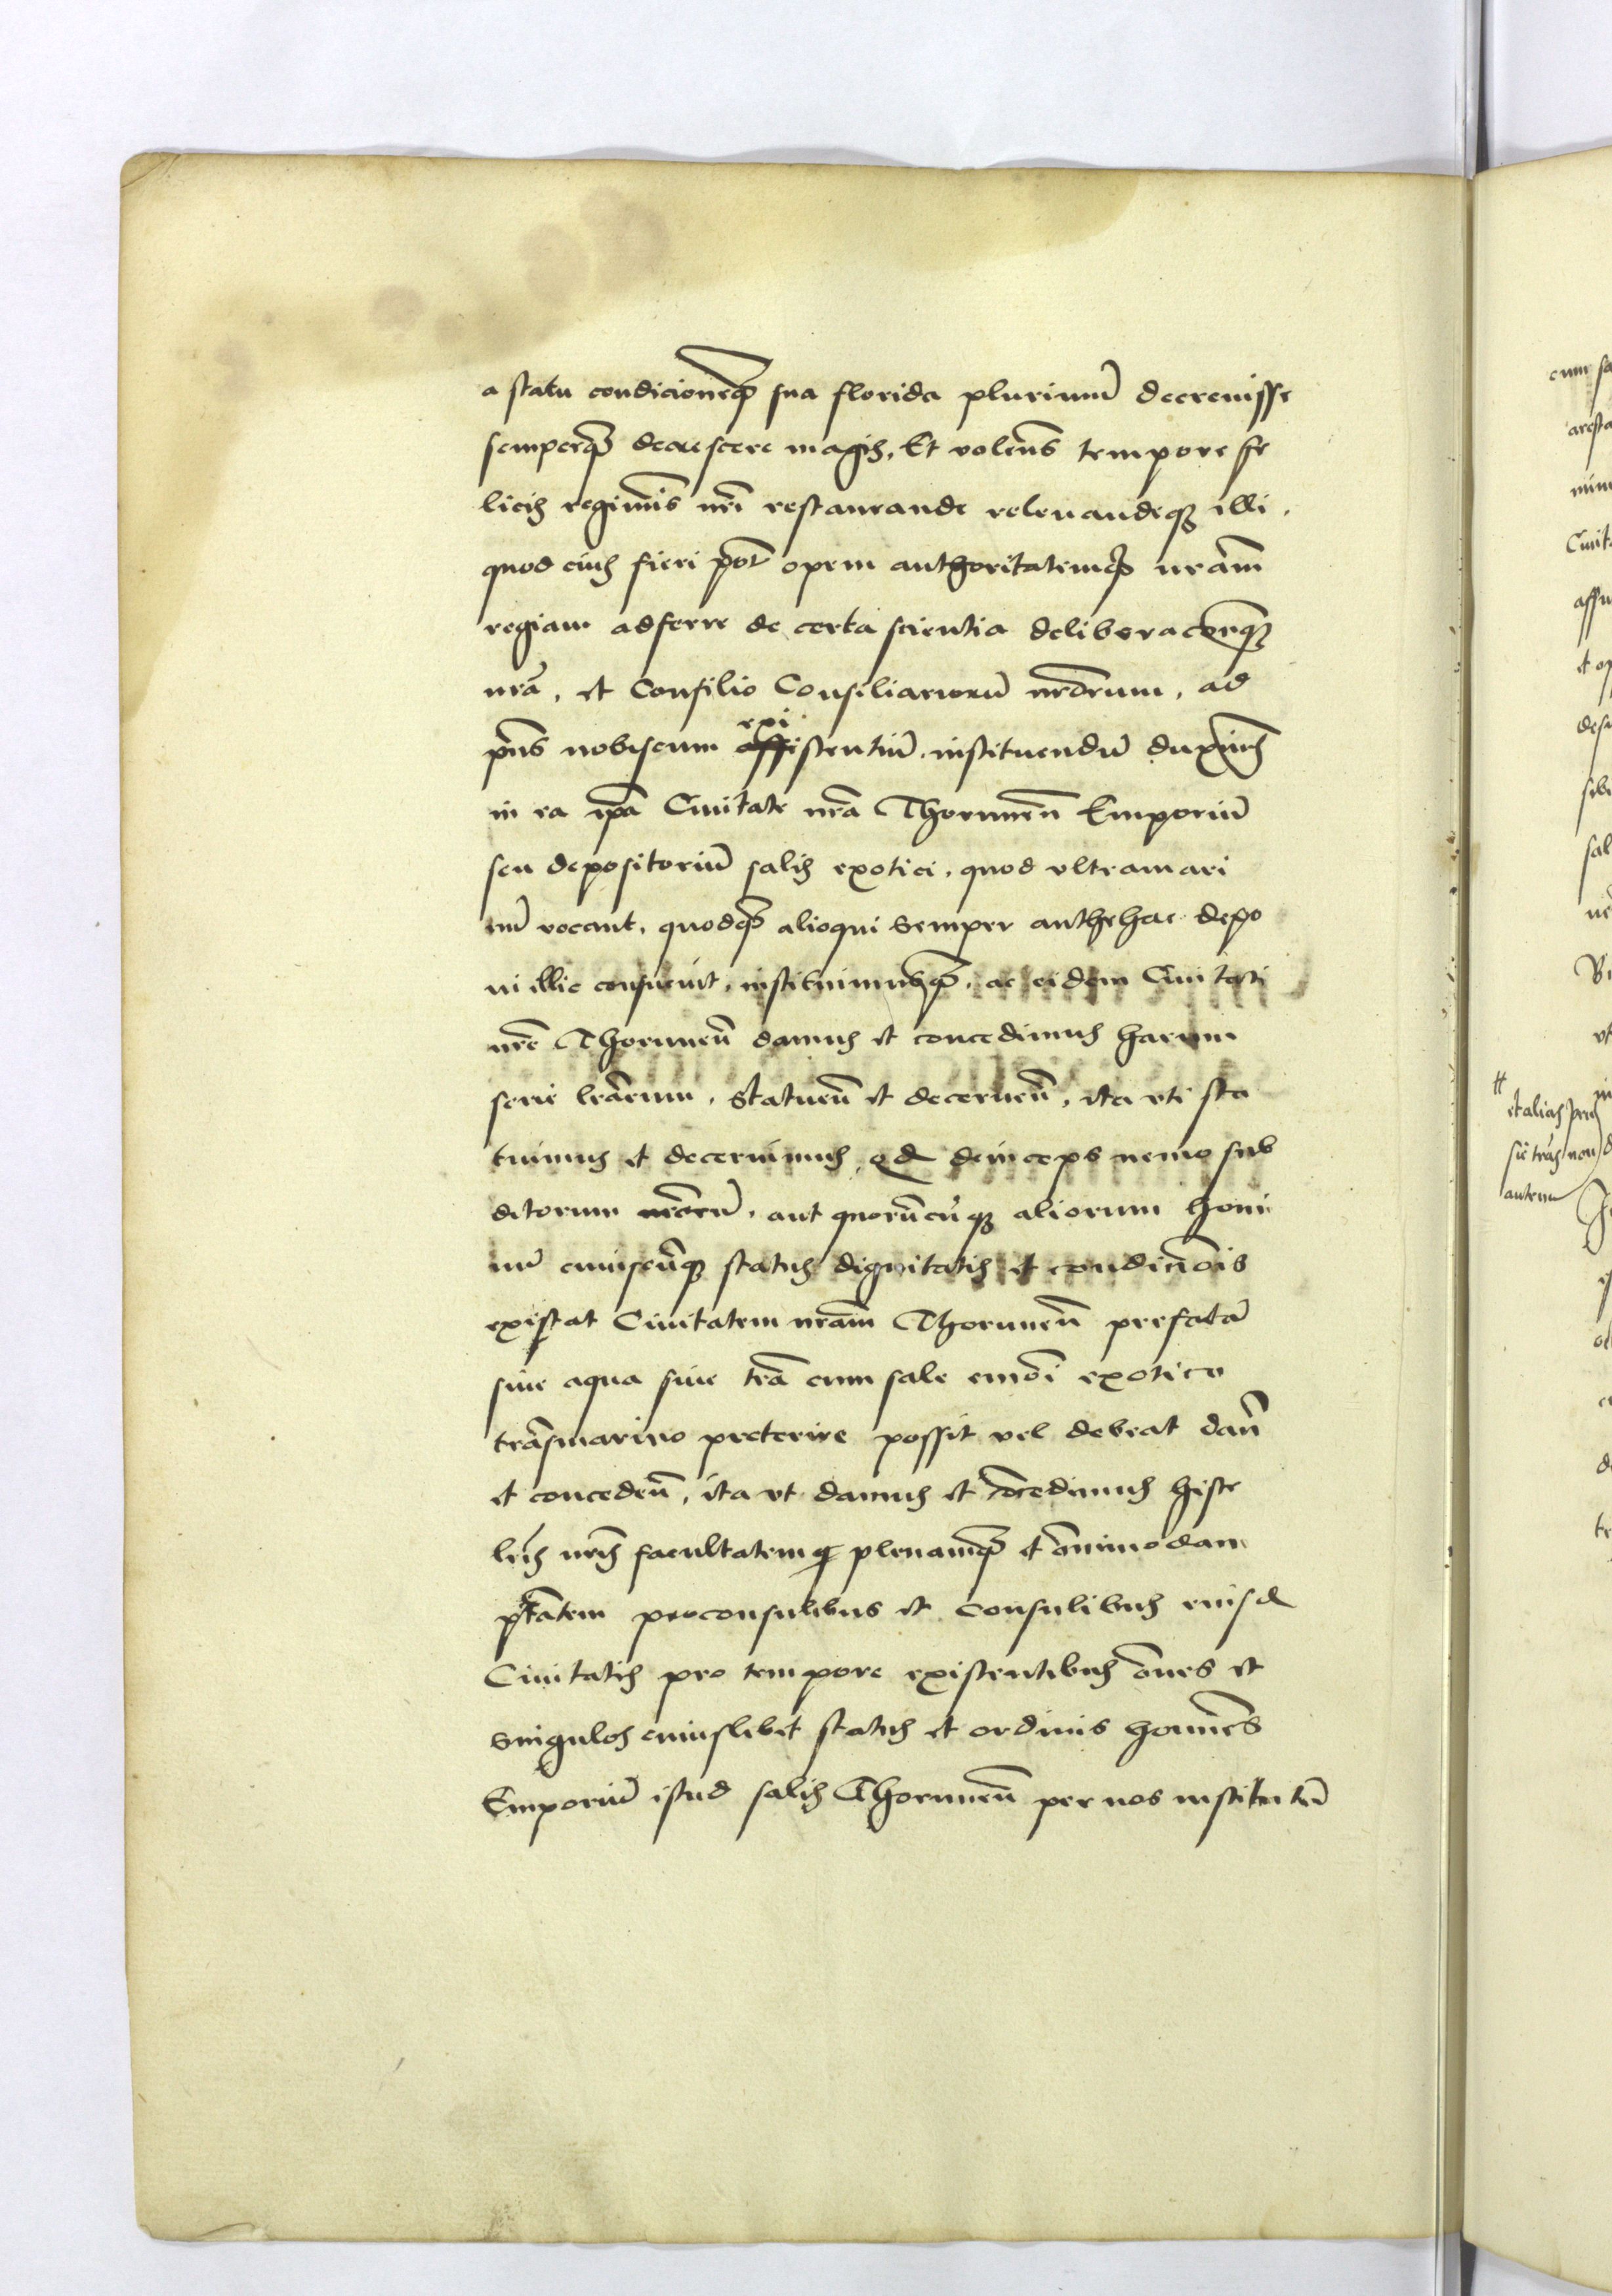 a statu condicioneq̃ sua florida plurimũ decreuisse
semperq̃ decrescere magis, Et volen̄s tempore fe
licis regimĩs nr̃i restaurande releuandeq3 illi,
quod eius fieri pot̃ opem authoritatemq̃ nr̃am
regiam adferre de certa scientia deliberacõneq3
nr̃a, et Consilio Consiliariorũ nr̃orum, ad
pñs nobiscum exi istentiũ, instituendũ duximus
in ea ip̃a Ciuitate nr̃a Thorunen̄ Emporiũ
seu depositoriũ salis exotici, quod vltramari
nũ vocant, quodq̃ alioqui semper anthehac depo
ni illic consueuit, instituimusq̃, ac eidem Ciuitati
nr̃e Thorunen̄ damus et concedimus harum
serie lr̃arum, Statuen̄ et decernen̄, ita vti sta
tuimus et decernimus, qd deinceps nemo sub
ditorum nr̃orũ, aut quorũcũq3 aliorum homi
nũ cuiuscũq3 status dignitatis et condicõis
existat Ciuitatem nr̃am Thorunen̄ prefatã
siue aqua siue tr̃a cum sale emõi exotico
trãsmarino preterire possit vel debeat dan̄
et conceden̄, ita vt damus et cõcedimus hisce
lr̃is nr̃is facultatemq̃ plenamq̃ et õnimodam
ptãtem proconsulibus et Consulibus eiusd
Ciuitatis pro tempore existentibus õnes et
Singulos cuiuslibet status et ordinis homines
Emporiũ istud salis Thorunen̄ per nos institutũ
et alias
autem